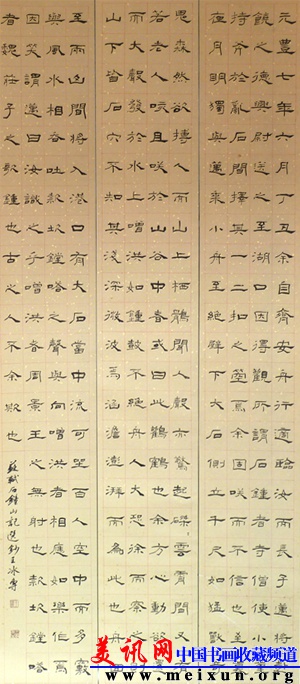 元豐七年六月丁丑余自齊安舟行適臨汝而長子邁將赴
饒之德興尉送之至湖口因得觀所謂石鍾者寺僧使小童
持斧於亂石間擇其一二扣之箜焉余固笑而不信也至其
夜月明獨與邁乘小舟至絕壁下大石側立千尺如猛獸奇
鬼森然欲搏人而山上栖鶻聞人聲亦驚起磔磔雲霄間又有
若老人咳且笑於山谷中者或曰此鸛鶴也余方心動欲還
而大聲發於水上噌吰如鍾鼓不絕舟人大恐徐而察之則
山下皆石穴罅不知其淺深微波入焉涵澹澎湃而為此也舟迴
至兩山間將入港口有大石當中流可坐百人空中而多竅
與風水相吞吐有窾坎鏜鞳之聲與向之噌吰者相應如樂作焉
因笑謂邁曰汝識之乎噌吰者周景王之無射也窾坎鏜鞳
者魏莊子之歌鍾也古之人不余欺也
蘇軾石鐘山記選鈔王冰書
美讯网 中国书画收藏频道
www.yixun.com